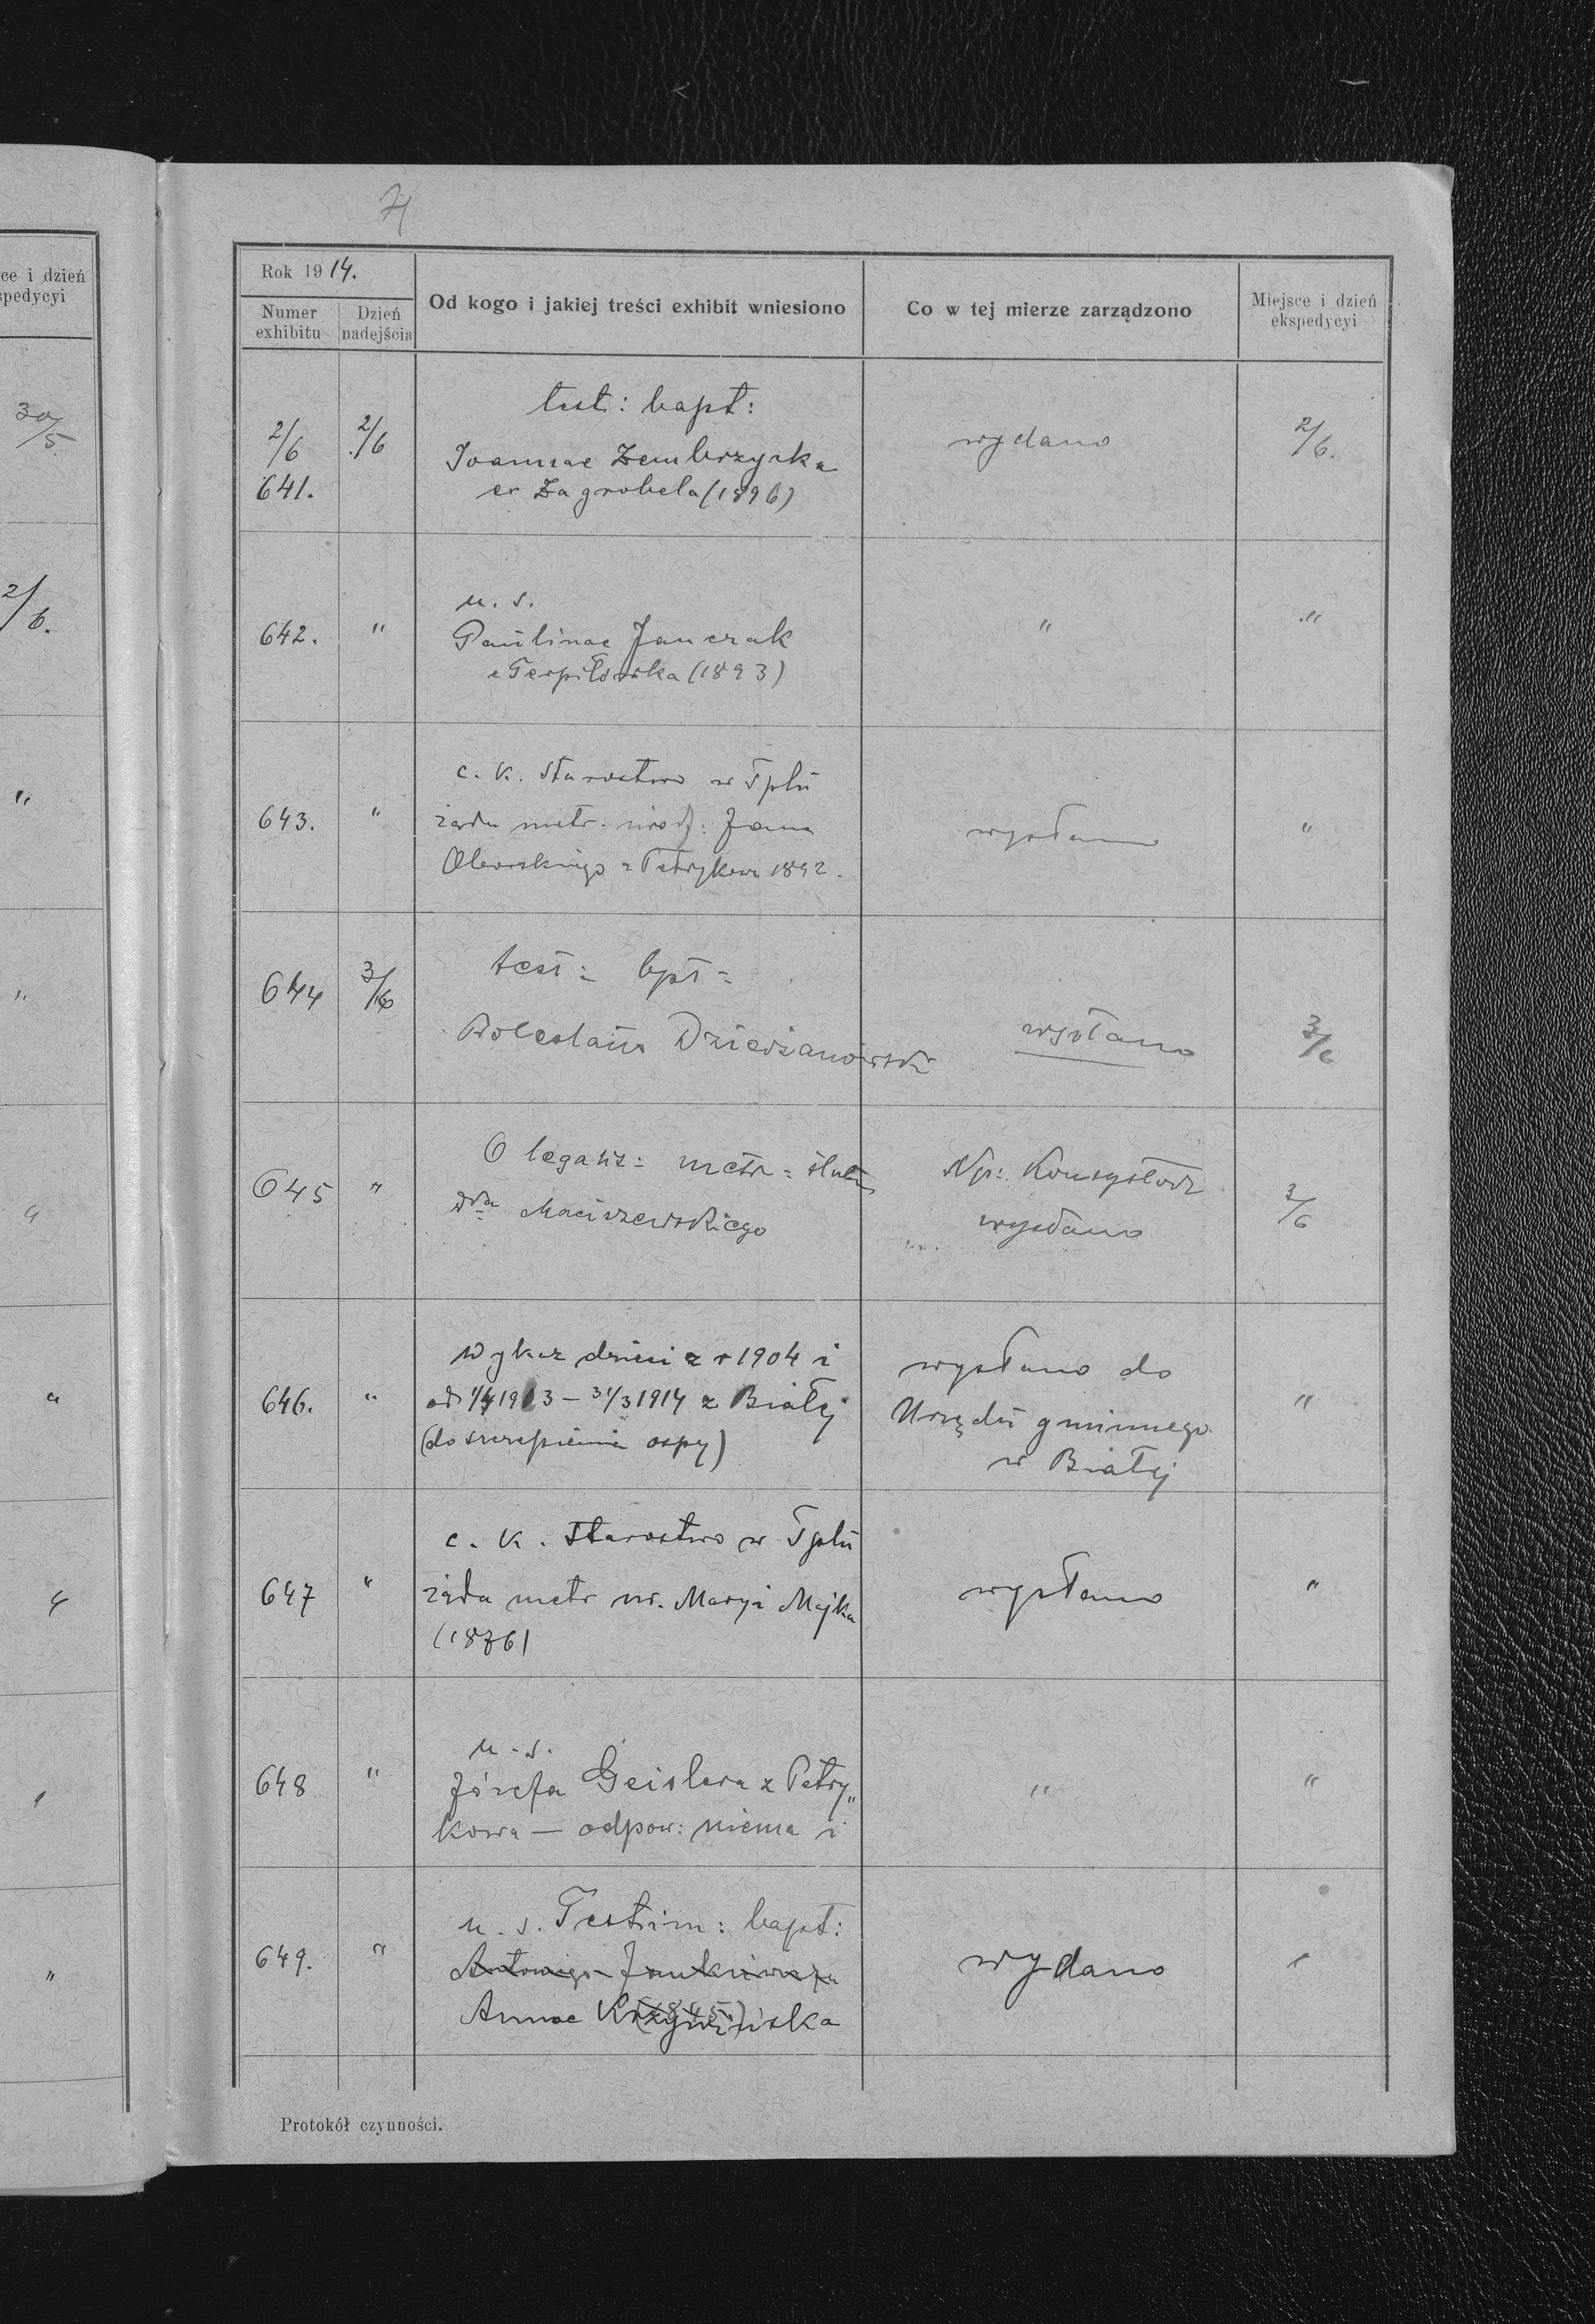 ce i dzień
spedycyi
30/5
2/6.
"
"
"
"
"
"
"
71
Rok 1914.
Numer exhibitu
Dzień nadejścia
Od kogo i jakiej treści exhibit wniesiono
Co w tej mierze zarządzono
Miejsce i dzień ekspedycyi
2/6
641.
2/6
test: bapt:
Joannae Zembrzyska
ex Zagrobela (1896)
wydano
2/6.
642.
"
u. s.
Paulinae Janczak
e Terpiłówka (1893)
"
"
643.
"
c. k. Starostwo w Tplu
żąda metr. urodz: Jana
z Petrykowa 1892.
wysłano
"
644
3/6
test: bpt:
Bolesława Dzierżanowski
wysłano
3/6
645
"
O legaliz: metr: ślubu
dra Maciszewskiego
Np: Konsystorz
wysłano
3/6
646.
"
Wykaz dzieci z r 1904 i
od 1/4 1913 – 31/3 1914 z Białej
(do szczepienia ospy)
wysłano do
Urzędu gminnego
w Białej
"
647
"
c. k. Starostwo w Tplu
żąda metr ur. Maryi Majka
(1876)
wysłano
"
648
"
u. s.
Józefa Geislera z Petry„
kowa — odpow: niema i
"
"
649.
"
u. s. Testim: bapt:
Antoniego Jankiewicza
Annae
wydano
"
Protokół czynności.